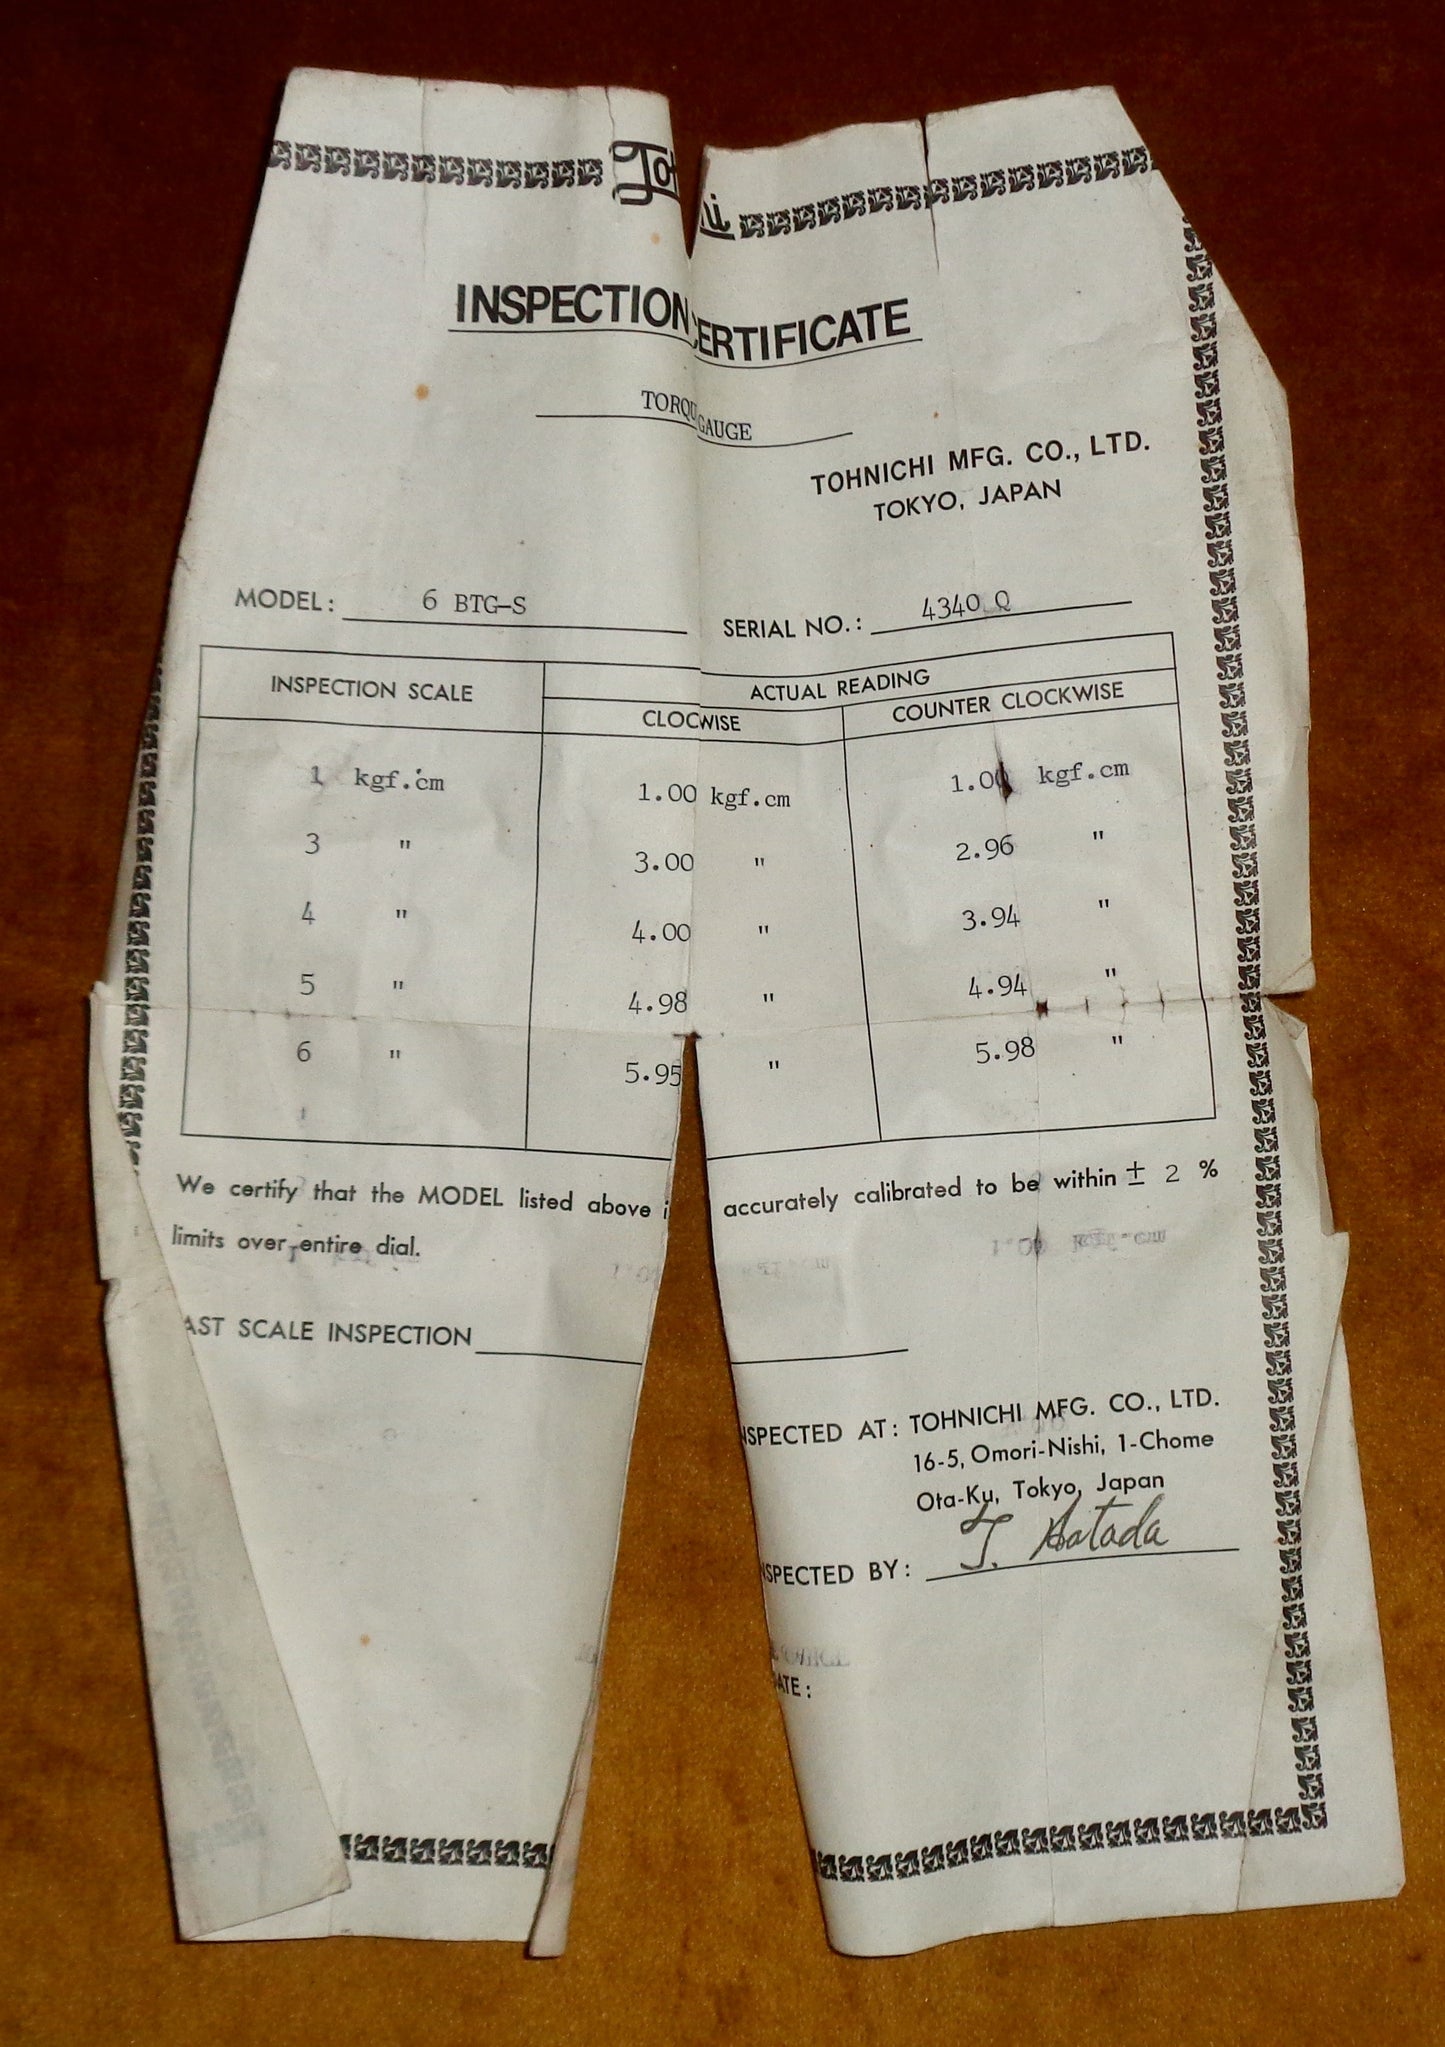 INSPECTION CERTIFICATE
TORQU GAUGE
TOHNICHI MFG. CO., LTD.
TOKYO, JAPAN
MODEL: 6 BTG-S SERIAL NO.: 4340 Q
INSPECTION SCALE ACTUAL READING
CLOCWISE COUNTER CLOCKWISE
1 kgf.cm 1.00 kgf.cm 1.00 kgf.cm
3 " 3.00 " 2.96 "
4 " 4.00 " 3.94 "
5 " 4.98 " 4.94 "
6 " 5.95 " 5.98 "
We certify that the MODEL listed above i accurately calibrated to be within ± 2 %
limits over entire dial.
AST SCALE INSPECTION
NSPECTED AT: TOHNICHI MFG. CO., LTD.
16-5, Omori-Nishi, 1-Chome
Ota-Ku, Tokyo, Japan
NSPECTED BY: T. Hatada
DATE: